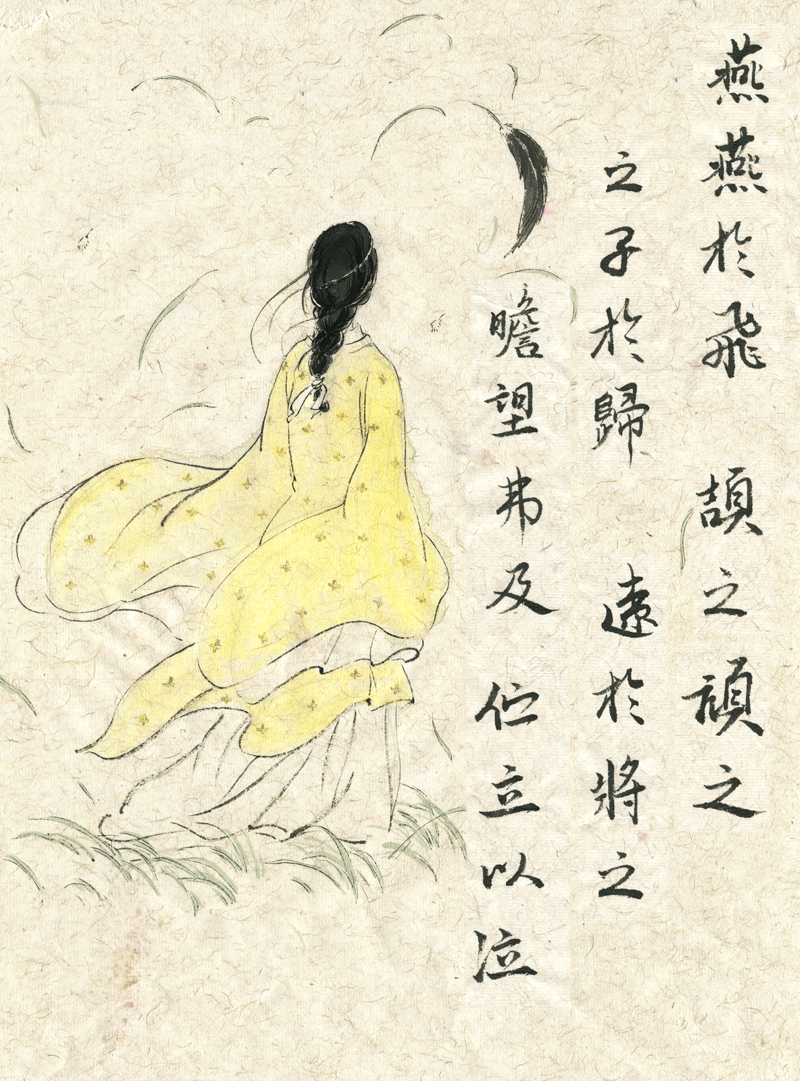 燕燕於飛 頡之頏之
之子於歸 遠於將之
瞻望弗及 伫立以泣